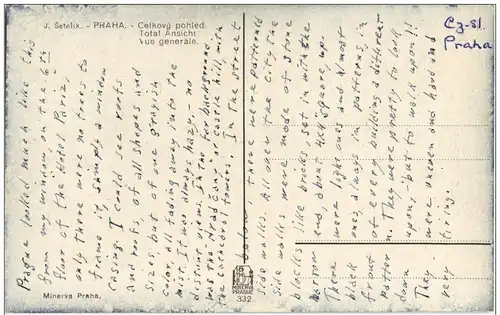 J. Šetelík. - PRAHA. - Celkový pohled.
Total Ansicht
Vue generale.
Cz-81
Praha
Prague looked much like this
from my window, on the 6th
floor of the Hotel Pariz;
only there were no trees to
frame it, simply a window
casing. I could see roofs
and roofs, of all shapes and
sizes, but of one grayish
color, all fading away into the
mist. It was always hazy, - no
distant views. In the far background
was the Hradčany or castle hill with
the cathedral towers. In the street
below there were patterned
side walks. All over the city the
side walks were made of stone
blocks like bricks, set in with the
narrow end, about 4" square, up.
There were light ones and almost
black ones, always in patterns, in
front of every building a different
pattern. They were pretty to look
down upon, but to walk upon!!
They were uneven and hard and
very tiring.
MINERVA
PRAGUE
332
Minerva Praha.